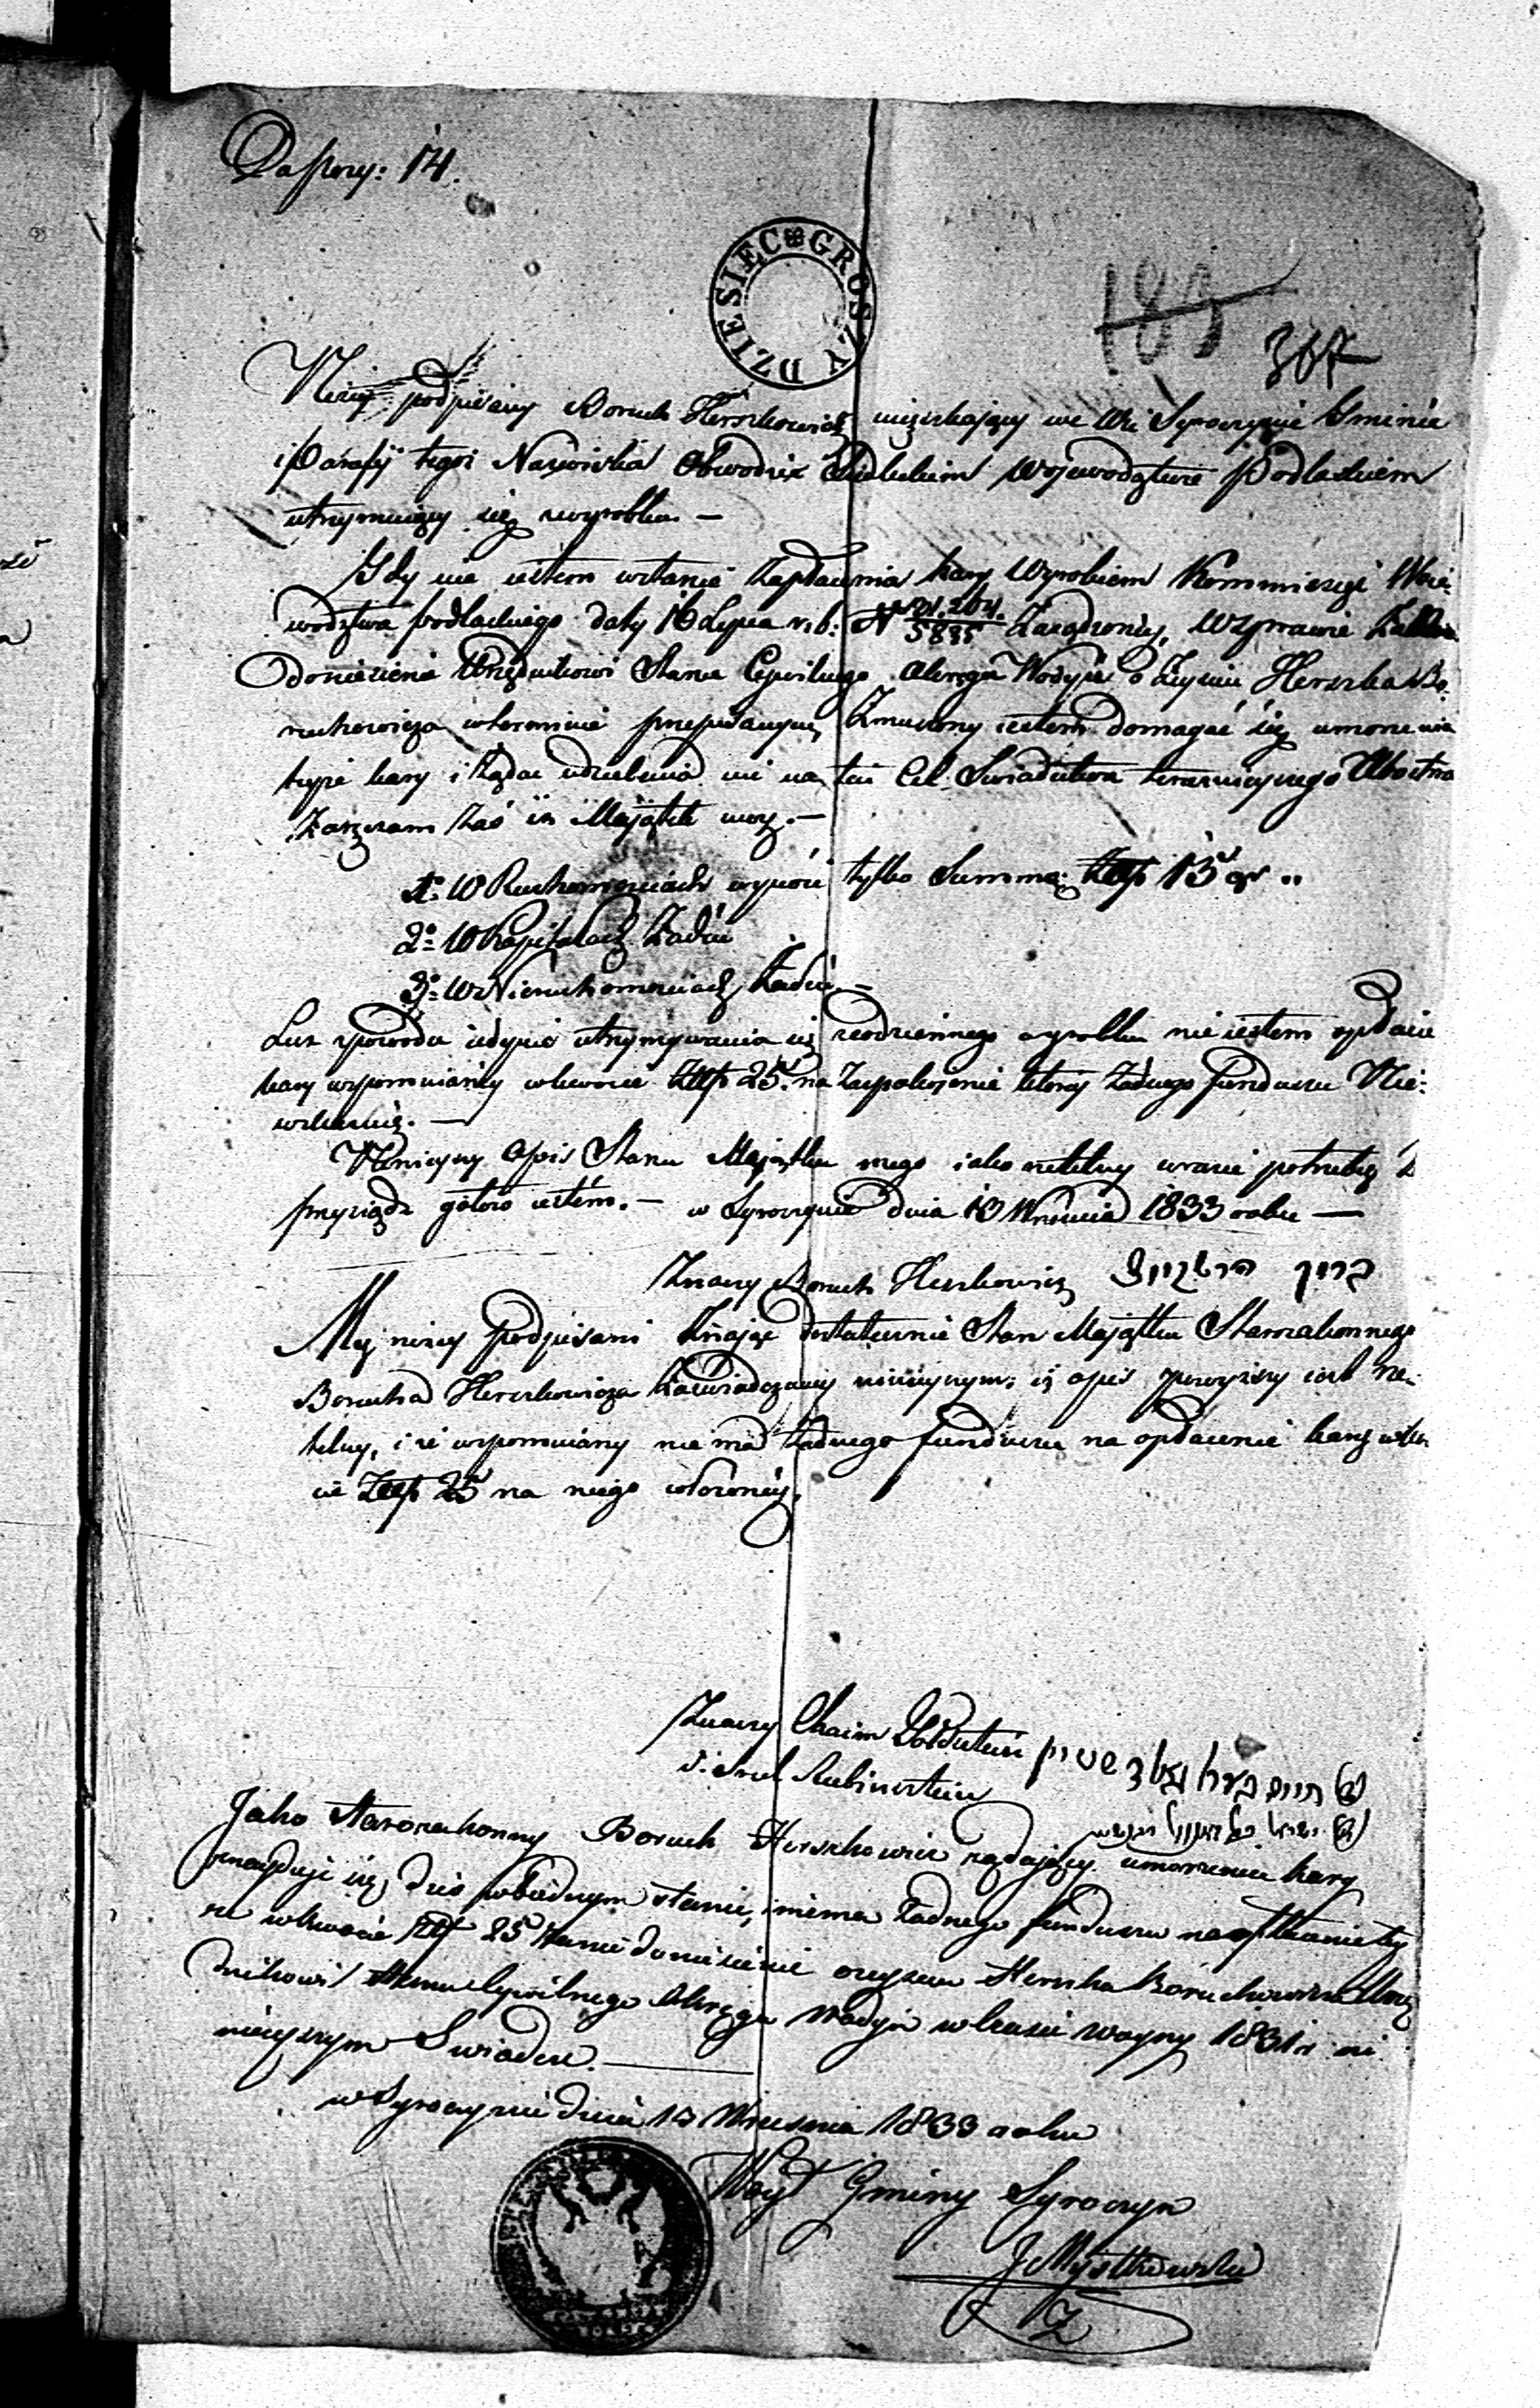 Do pozy: 14.
DZIESIĘĆ GROSZY
183
367
Niżey podpisany Boruch Herszkowicz mięszkaiący we Wsi Syroczynie Gminie
i Parafij tegoż Nazwiska Obwodzie Siedleckim Wojewodztwie Podlaskiem
utrzymuiący się z wyrobku. —
Gdy nie iestem wstanie Zapłacenia kary Wyrobiem Kommissyi Woie-
wodztwa podlaskiego daty 16 Lipca r. b: N 5835 Zarządzoney, W Sprawie
Doniesienie Urzędnikowi Stanu Cywilnego Okręgu Wodynie o Zeyściu Herszka Bo-
ruchowicza wterminie przepisanym, Zmuszony iestem domagać się umorzenia
teyże kary i żądać udzielenia mi na ten Cel Swiadectwa Ubostwa
Zarzam zaś iż Maiątek moy. —
1o W Ruchomosciach wynosi tylko Summę Złp 15 gr „
2o W Kapitałach Żadne
3o W Nieruchomosciach Żadne —
Lecz zpowodu iedynie utrzymywania się zcodziennego wyrobku nie iestem opłacić
kary wspomnianey wkwocie Złp 25. na Zaspokoienie ktorey żadnego funduszu Nie-
Ninieyszy Opis Stanu Maiątku mego iako rzetelny wrazie potrzeby
przysiądz gotow iestem. — w Syroczynie dnia 13 Wrzesnia 1833 roku —
Znaczy Boruch Herszkowicz ברוך הרשקוויץ
My niżey podpisani Znaiąc dostatecznie Stan Maiątku Starozakonnego
Borucha Herszkowicza Zaświadczamy ninieyszym; iż opis powyższy iest rze-
telny, i że wspomniany nie ma żadnego funduszu na opłacenie kary wkwo
cie Złp 25 na niego włożoney.
Znaczy Chaim Goldsztein
Srul Rubinsztein
Jako Starozakonny Boruch Herszkowicz żądaiący umorzenia kary
znayduie się dziś wbiednym stanie, i niema żadnego funduszu na opłacenie tey
że wkwocie Złp 25 doniesienie ozeyściu Herszka Boruchowicza Urzę
dnikowi Stanu Cywilnego Okręgu Wodynie wczasie woyny 1831 r. ni
nieyszym Swiadczę. —
w Syroczynie dnia 13 Wrzesnia 1833 roku
Woyt Gminy Syroczyn
J Mystkowski